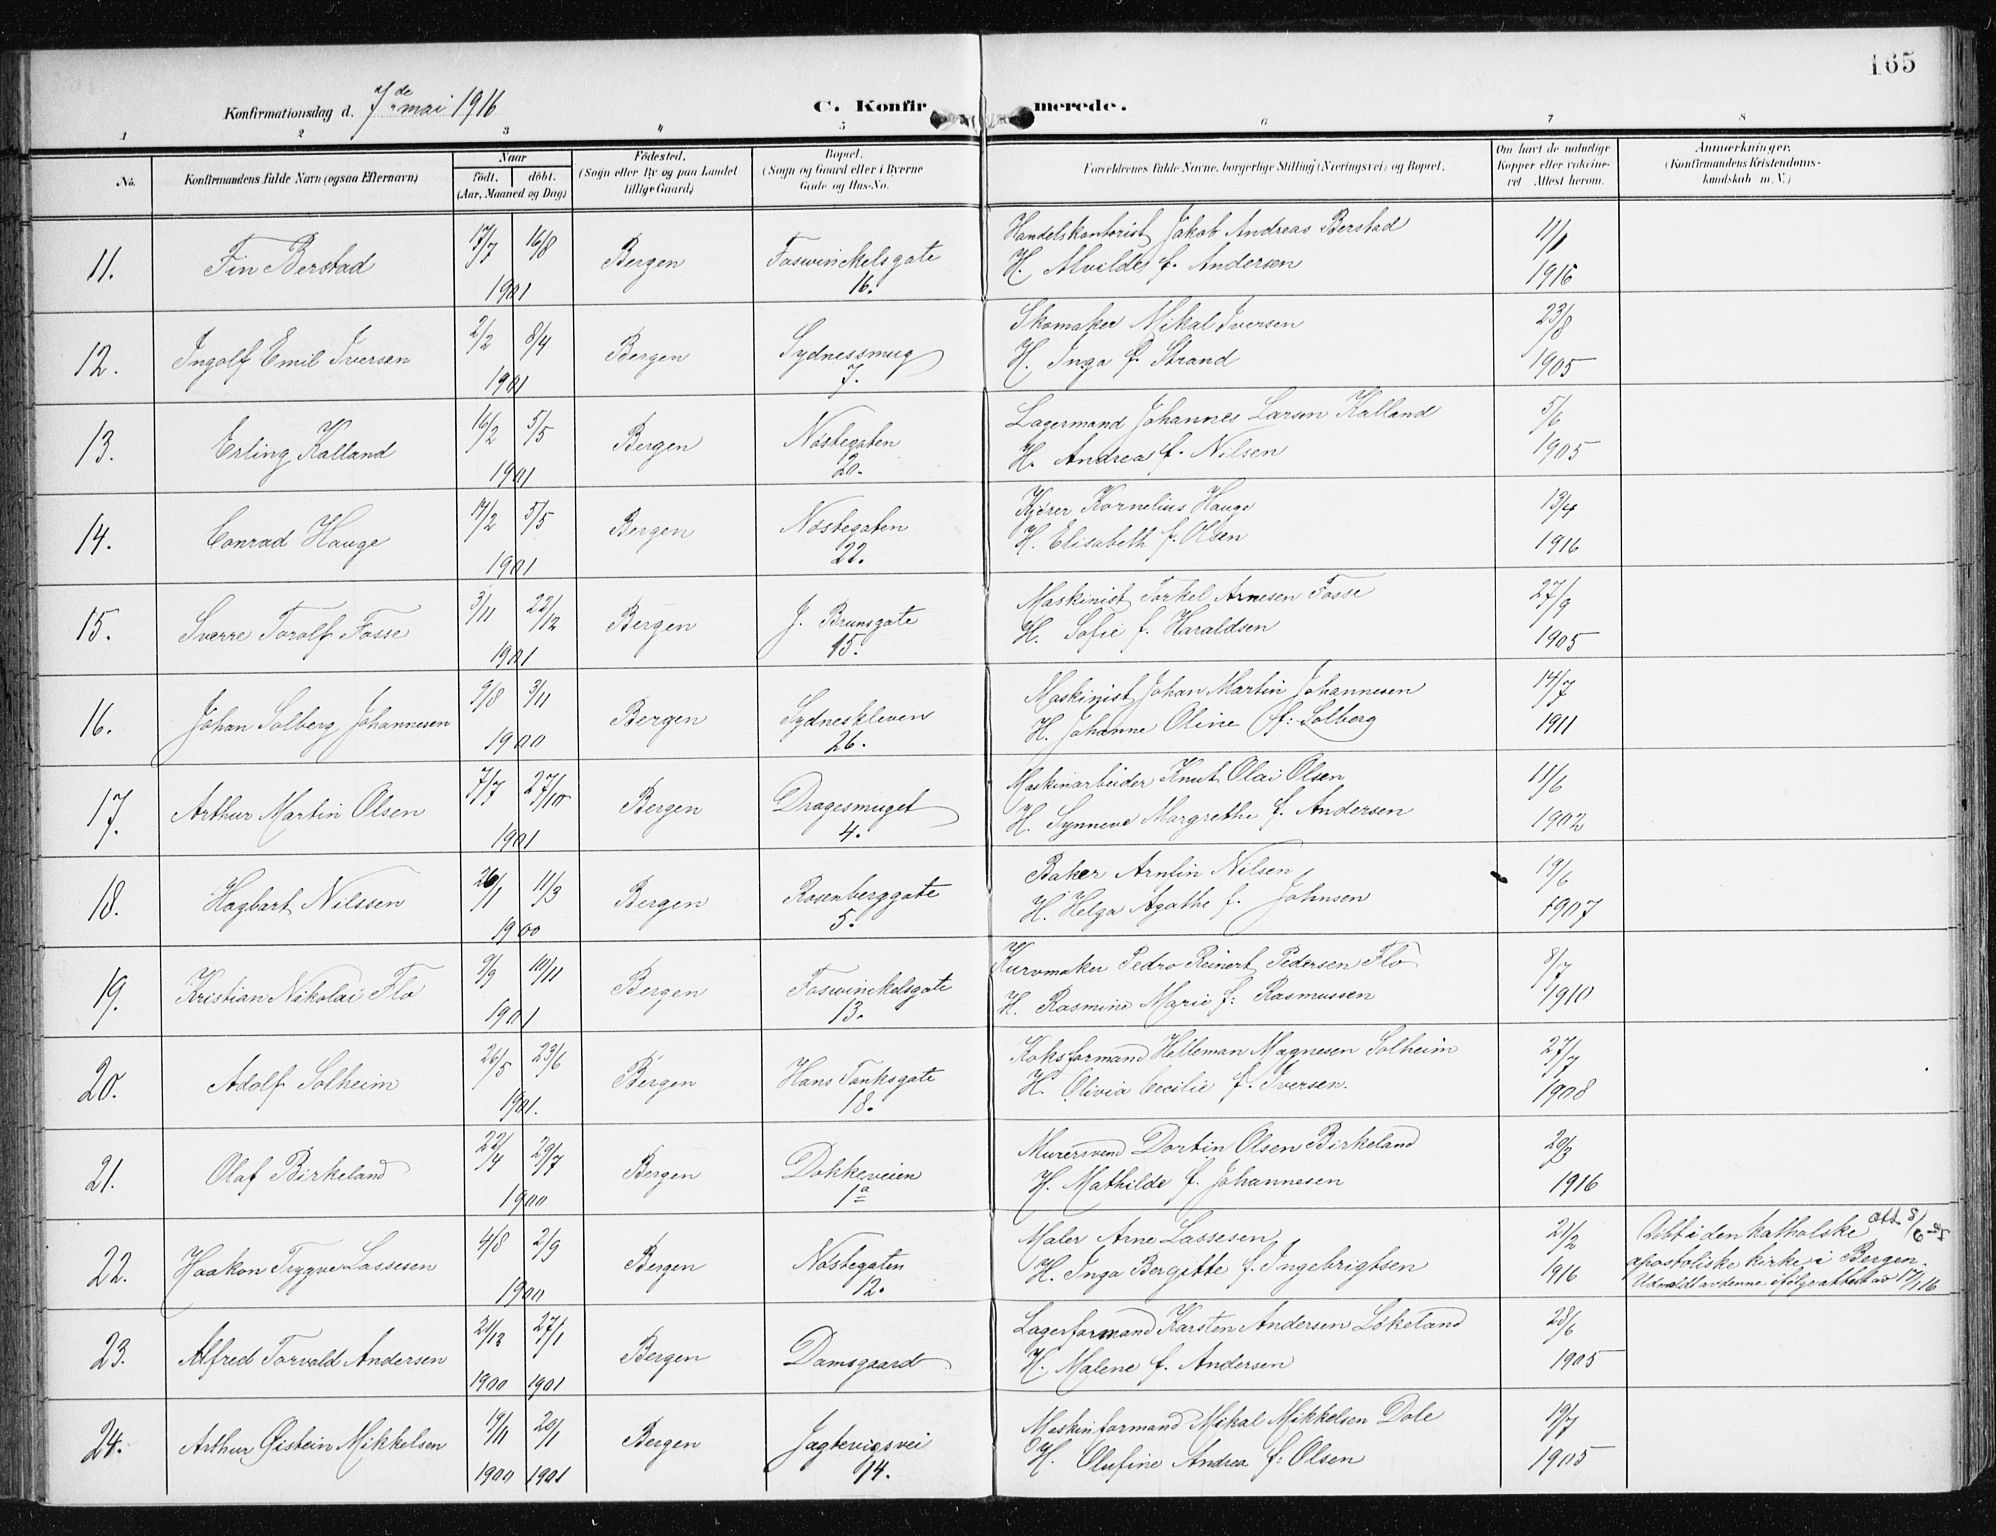 165
Konfirmationsdag d. 7de mai 1916
C. Konfirmerede.
1 2 3 4 5 6 7 8
No. Konfirmandens fulde Navn (ogsaa Efternavn)
Naar
født. døbt.
(Aar, Maaned og Dag)
Fødested.
(Sogn eller By og paa Landet
tillige Gaard)
Bopæl.
(Sogn og Gaard eller i Byerne
Gade og Hus-No.
Forældrenes fulde Navne, borgerlige Stilling (Næringsvei) og Bopæl.
Om havt de naturlige
Kopper eller vaccine-
ret Attest herom.
Anmærkninger.
(Konfirmandens Kristendoms-
kundskab m. V.)
11. Fin Berstad 17/7 16/8 1901 Bergen Foswinckelsgate 16.
Handelskontorist Jakob Andreas Berstad
H. Alvilde f. Andersen
11/1 1916
12. Ingolf Emil Iversen 2/2 8/4 1901 Bergen Sydnessmug 7.
Skomaker Mikal Iversen
H. Inga f. Strand
23/8 1905
13. Erling Kalland 16/2 5/5 1901 Bergen Nøstegaten 20.
Lagermand Johannes Larsen Kalland
H. Andrea f. Nilsen
5/6 1905
14. Conrad Hauge 14/2 5/5 1901 Bergen Nøstegaten 22.
Kjører Kornelius Hauge
H. Elisabeth f. Olsen
13/4 1916
15. Sverre Torolf Fosse 3/11 22/12 1901 Bergen J. Brunsgate 15.
Maskinist Torkel Arnesen Fosse
H. Sofie f. Haraldsen
27/9 1905
16. Johan Solberg Johannesen 9/8 3/11 1900 Bergen Sydneskleven 26.
Maskinist Johan Martin Johannesen
H. Johanne Oline f. Solberg
14/7 1911
17. Arthur Martin Olsen 7/7 27/10 1901 Bergen Dragesmuget 4.
Maskinarbeider Knut Olai Olsen
H. Synneve Margrethe f. Andersen
11/6 1902
18. Hagbart Nilssen 26/1 11/3 1900 Bergen Rosenberggate 5.
Baker Arntin Nilsen
H. Helga Agathe f. Johnsen
19/6 1907
19. Kristian Nikolai Flo 9/9 10/11 1901 Bergen Foswinckelsgate 13.
Kurvmaker Pedro Reinert Pedersen Flo
H. Rasmine Marie f. Rasmussen
8/7 1910
20. Adolf Solheim 26/5 23/6 1901. Bergen Hans Tanksgate 18.
Koksformand Helleman Magnesen Solheim
H. Olivia Cecilie f. Iversen.
27/7 1908
21. Olaf Birkeland 22/4 29/7 1900 Bergen Dokkeveien 1a
Murersvend Dortin Olsen Birkeland
H. Mathilde f. Johannesen
20/3 1916
22. Haakon Trygve Lassesen 4/8 2/9 1900 Bergen Nøstegaten 12.
Maler Arne Lassesen
H. Inga Bergitte f. Ingebrigtsen
21/2 1916
Døbt i den katholske
apostoliske kirke i Bergen.
Udmeldt av denne ifølge attest av 17/1 16
23. Alfred Torvald Andersen 21/12 1900 27/1 1901 Bergen Damsgaard
Lagerformand Karsten Andersen Løkeland
H. Malene f. Andersen
28/6 1905
24. Arthur Øistein Mikkelsen 19/11 1900 20/1 1901 Bergen Jægtevigsvei 14.
Maskinformand Mikal Mikkelsen Dale
H. Olufine Andrea f. Olsen
19/7 1905